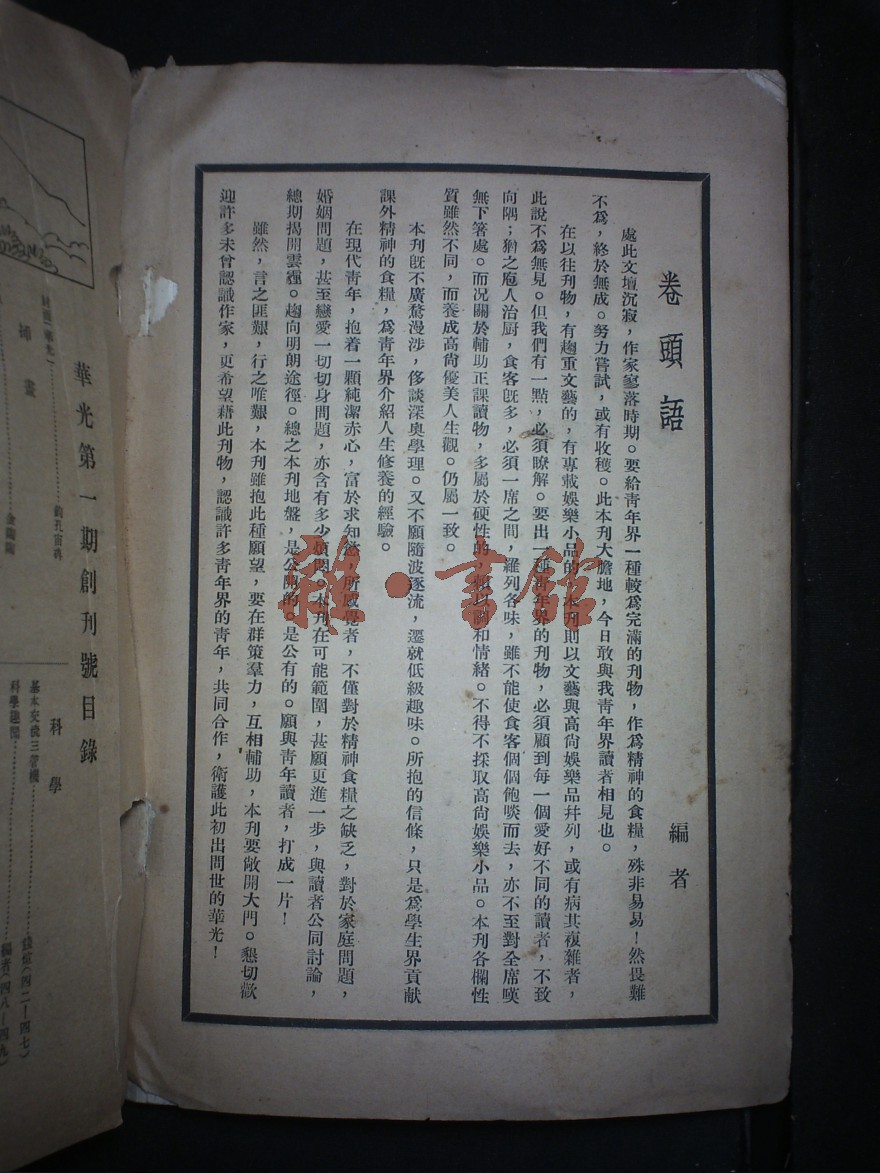 卷頭語
編者
處此文壇沉寂，作家寥落時期。要給靑年界一種較爲完滿的刊物，作爲精神的食糧，殊非易易！然畏難
不爲，終於無成。努力嘗試，或有收穫。此本刊大膽地，今日敢與我靑年界讀者相見也。
在以往刊物，有趨重文藝的，有專載娛樂小品的，本刊則以文藝與高尙娛樂品幷列，或有病其複雜者，
此說不爲無見。但我們有一點，必須瞭解。要出一種靑年界的刊物，必須顧到每一個愛好不同的讀者，不致
向隅；猶之庖人治厨，食客旣多，必須一席之間，羅列各味，雖不能使食客個個飽啖而去，亦不至對全席嘆
無下箸處。而况關於輔助正課讀物，多屬於硬性的，以調和情緒。不得不採取高尙娛樂小品。本刊各欄性
質雖然不同，而養成高尙優美人生觀。仍屬一致。
本刊旣不廣騖漫涉，侈談深奧學理。又不願隨波逐流，遷就低級趣味。所抱的信條，只是爲學生界貢献
課外精神的食糧，爲靑年界介紹人生修養的經驗。
在現代靑年，抱着一顆純潔赤心，富於求知慾，所感覺者，不僅對於精神食糧之缺乏，對於家庭問題，
婚姻問題，甚至戀愛一切切身問題，亦含有多少煩悶。本刊在可能範圍，甚願更進一步，與讀者公同討論，
總期揭開雲霾。趨向明朗途徑。總之本刊地盤，是公開的。是公有的。願與靑年讀者，打成一片！
雖然，言之匪艱，行之唯艱，本刊雖抱此種願望，要在群策羣力，互相輔助，本刊要敞開大門。懇切歡
迎許多未曾認識作家，更希望藉此刊物，認識許多靑年界的靑年，共同合作，衛護此初出問世的華光！
華光第一期創刊號目錄
科學
基本交流三管機
(四二—四七)
科學趣聞
編者(四八—四九)
插畫
雜·書館